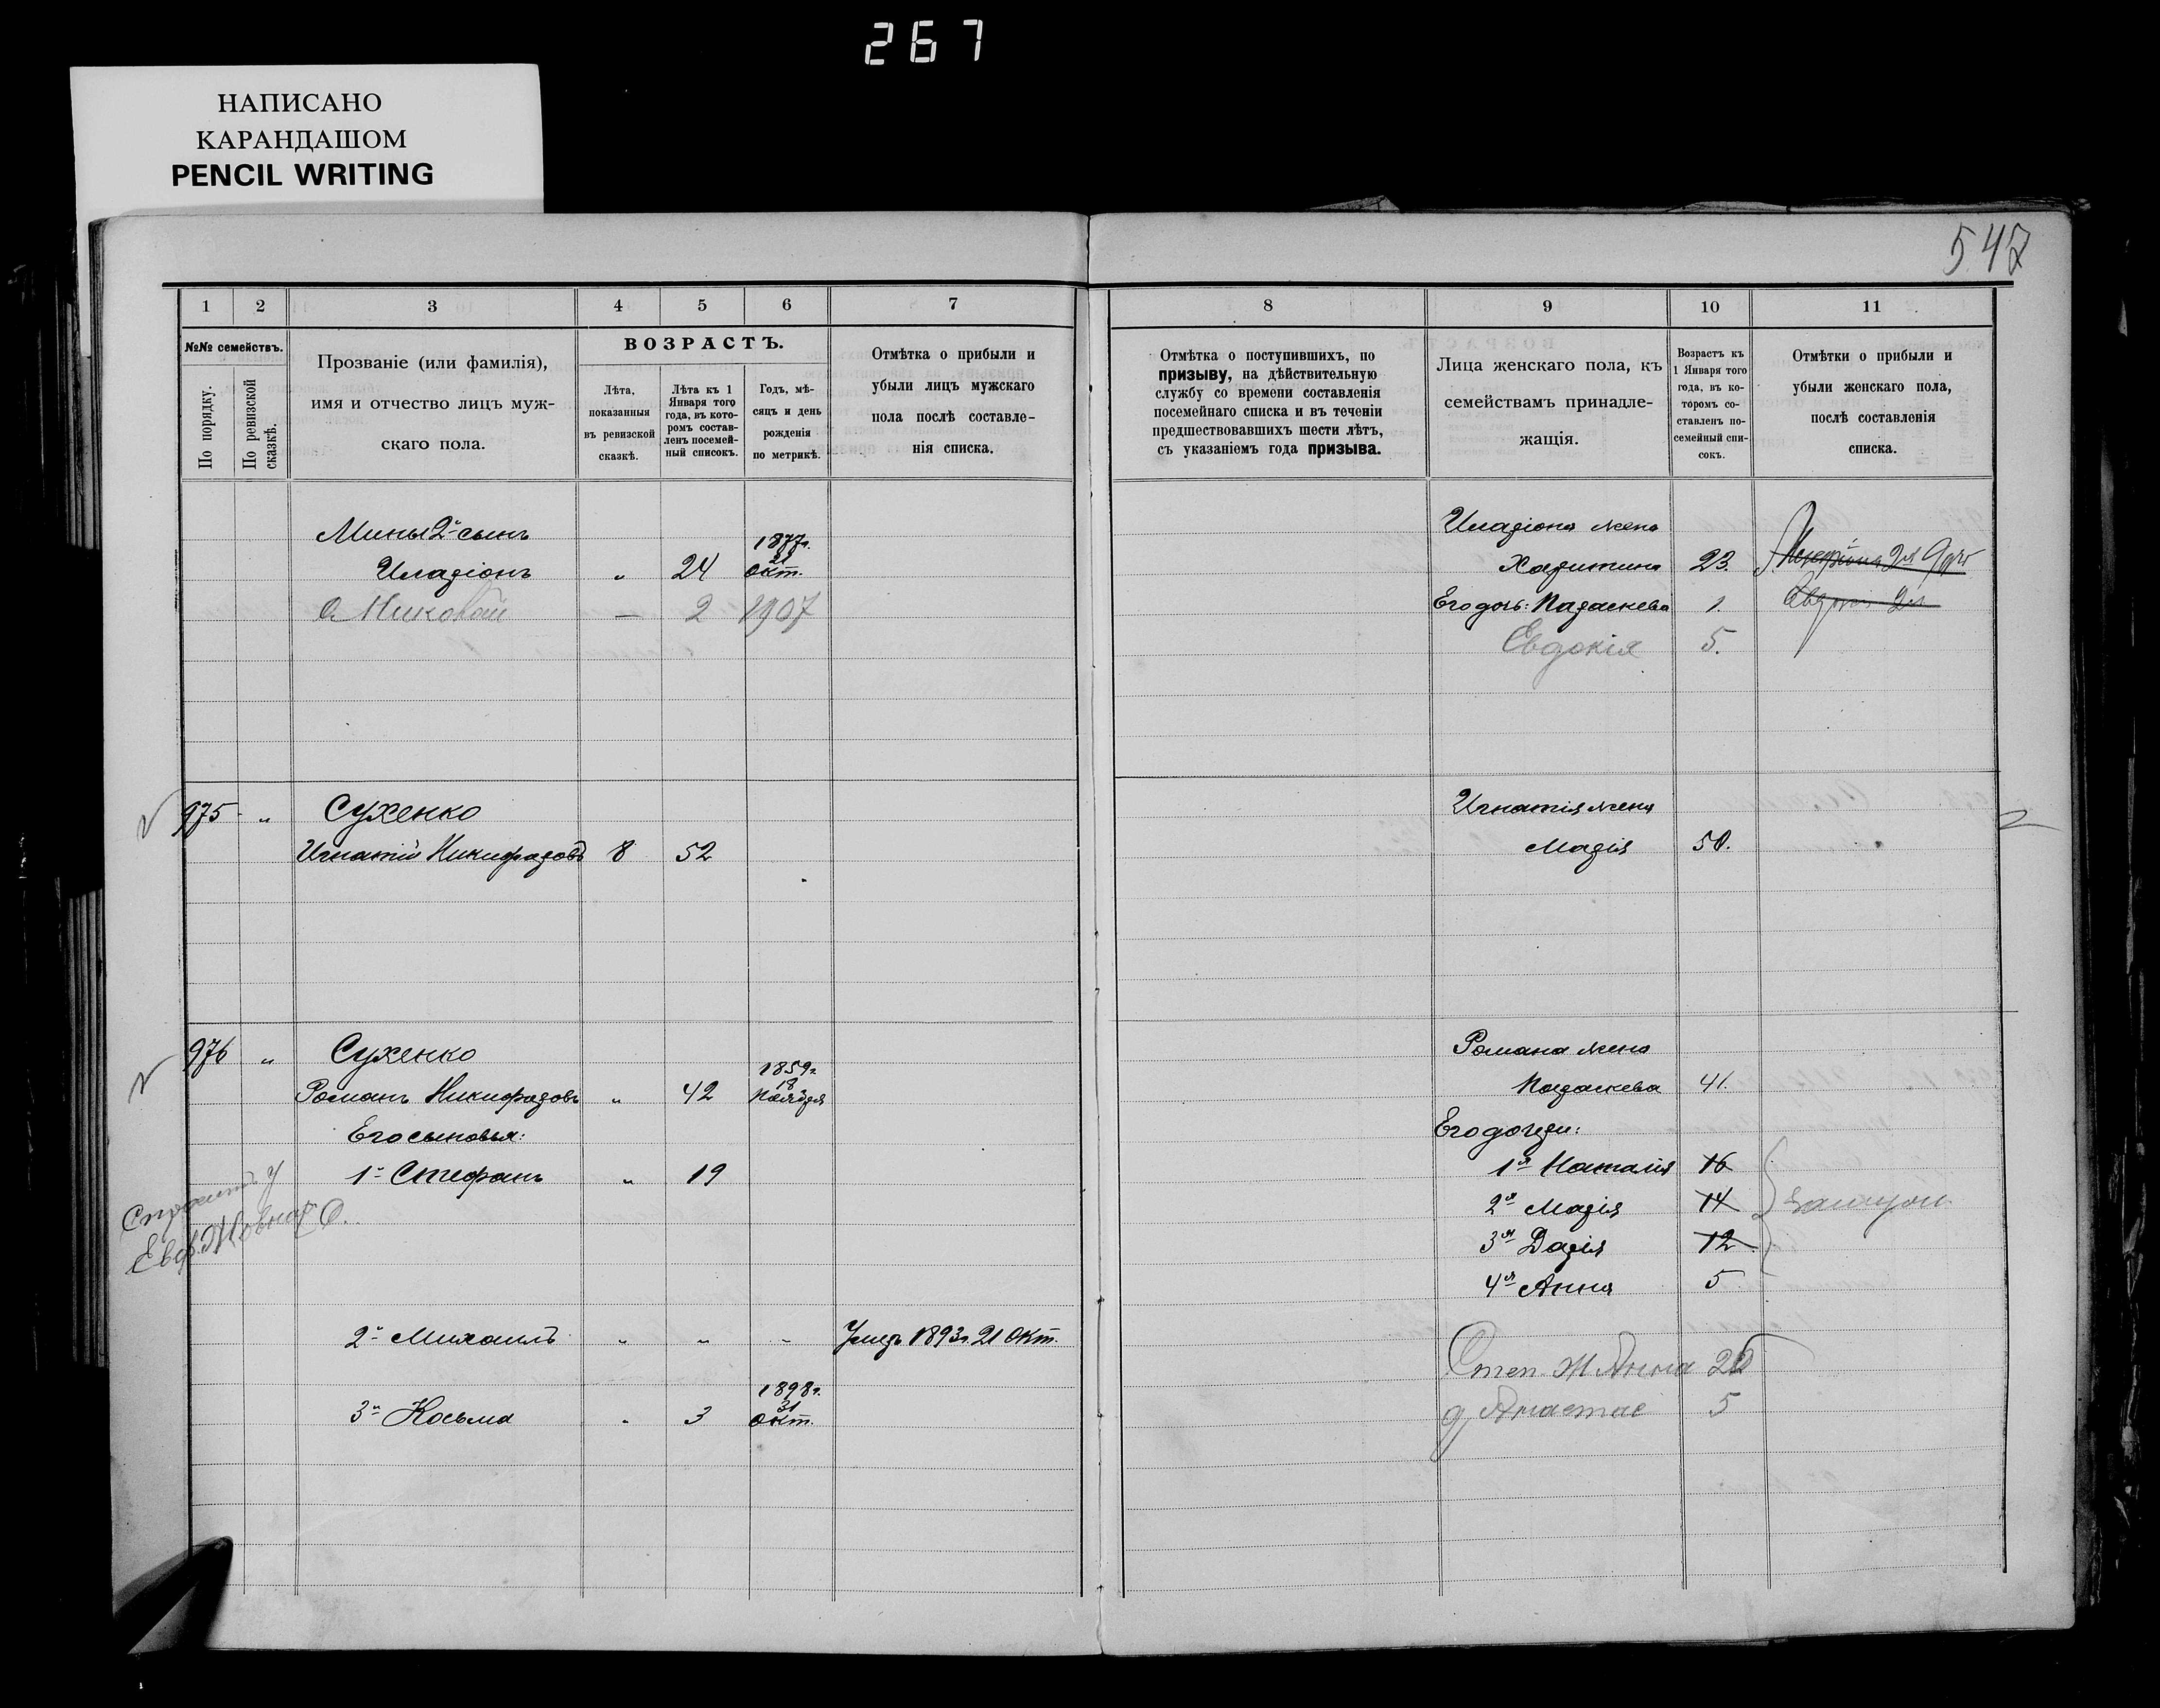 267
НАПИСАНО
КАРАНДАШОМ
PENCIL WRITING
547
1 2 3 4 5 6 7
№№ семействъ.
По порядку.
По ревизской сказкѣ.
Прозваніе (или фамилія),
имя и отчество лицъ муж-
скаго пола.
ВОЗРАСТЪ.
Лѣта,
показанныя
въ ревизской
сказкѣ.
Лѣта къ 1
Января того
года, въ кото-
ромъ состав-
ленъ посемей-
ный списокъ.
Годъ, мѣ-
сяцъ и день
рожденія
по метрикѣ.
Отмѣтка о прибыли и
убыли лицъ мужскаго
пола послѣ составле-
нія списка.
Мины 2й сынъ
1877г.
Иларіонъ „ 24 21 Окт.
с. Николай — 2 1907
975 „ Сухенко
Игнатій Никифоровъ 8 52
976 „ Сухенко
1859г.
Романъ Никифоровъ „ 42 18 Ноября
Его сыновья:
1й Стефанъ „ 19
2й Михаилъ „ „ „ Умеръ 1893г. 21 Окт.
1898г.
3й Косьма „ 3 31 Окт.
8 9 10 11
Отмѣтка о поступившихъ, по
призыву, на дѣйствительную
службу со времени составленія
посемейнаго списка и въ теченіи
предшествовавшихъ шести лѣтъ,
съ указаніемъ года призыва.
Лица женскаго пола, къ
семействамъ принадле-
жащія.
Возрастъ къ
1 Января того
года, въ ко-
торомъ со-
ставленъ по-
семейный спи-
сокъ.
Отмѣтки о прибыли и
убыли женскаго пола,
послѣ составленія
списка.
Иларіона жена
Харитина 23.
Его дочь: Параскева 1.
Евдокія 5.
Игнатія жена
Марія 50.
Романа жена
Параскева 41.
Его дочери:
1я Наталія 16
2я Марія 14
3я Дарія 12
4я Анна 5
Степ. ж Анна
д. Анастас 5